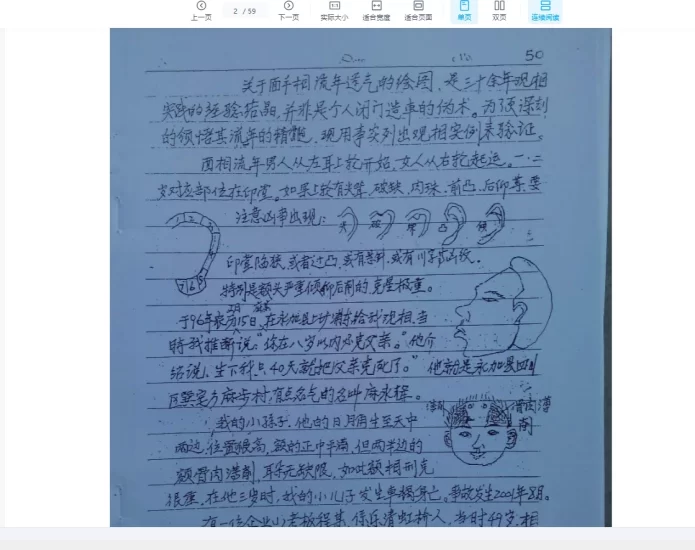 上一页
2 / 59
下一页
实际大小
适合宽度
适合页面
单页
双页
连续阅读
50
关于面手相流年运气的绘图，是三十余年观相
实践的经验结晶，并非是个人闭门造车的伪术。为了更深刻
的领悟其流年的精髓，现用事实列出观相实例来验证。
面相流年男人从左耳上轮开始，女人从右轮起运。一、二
岁对应部位在印堂。如果上轮有尖耸，破缺，肉珠，前凸，后仰等要
注意凶事出现：
尖 破 凸
印堂陷狭，或者过凸，或有悬针，或有川字
特别是额头严重倾斜后削的克星极重。
于96年 15日，在永 给我观相，当
时我推断说：“你在八岁以内必克父亲。”他介
绍说，生下我只40天就把父亲克死了。”他就是永加县四川
区 麻步村，有点名气的名叫麻永
我的小孩子，他的日月角生至天中
两边，位置很高，额的正中 但两半边的
额骨肉 削，耳朵无缺限，如此额相刑克
很重，在他三岁时，我的小儿子发生车祸身亡。事故发生2001年8月。
有一位企业小老板程某，係乐清虹桥人，当时49岁，相